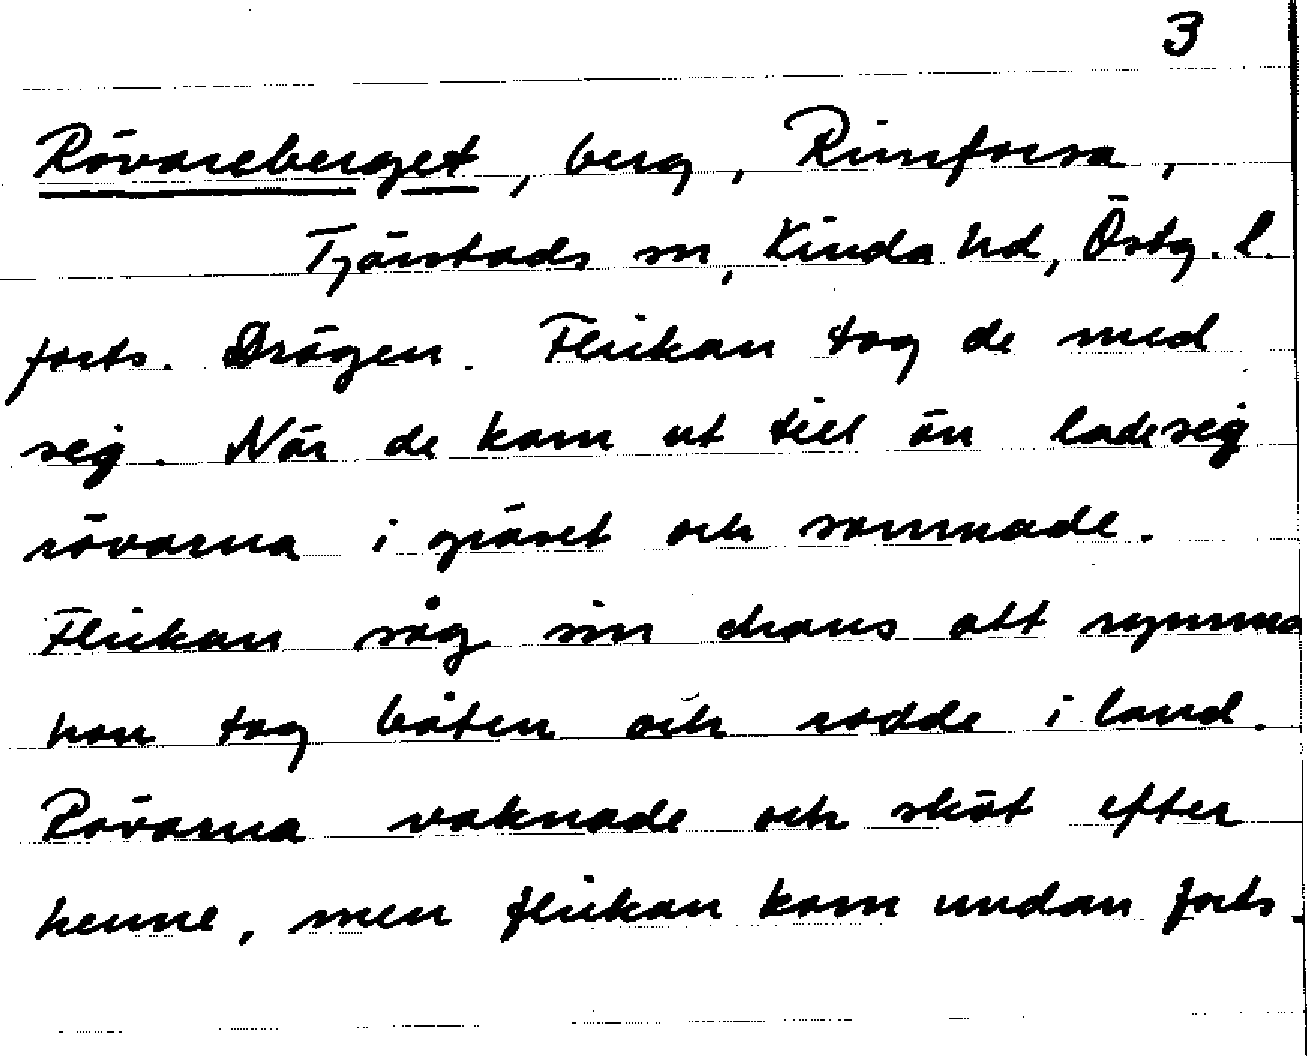 3
Rövareberget, berg, Rimforsa,
Tjärstads sn, Kinda hd, Östg. l.
forts. Drögen. Flickan tog de med
sig. När de kom ut till ön lade sig
rövarna i gräset och somnade.
Flickan såg sin chans att rymma
hon tog båten och rodde i land.
Rövarna vaknade och sköt efter
henne, men flickan kom undan forts.